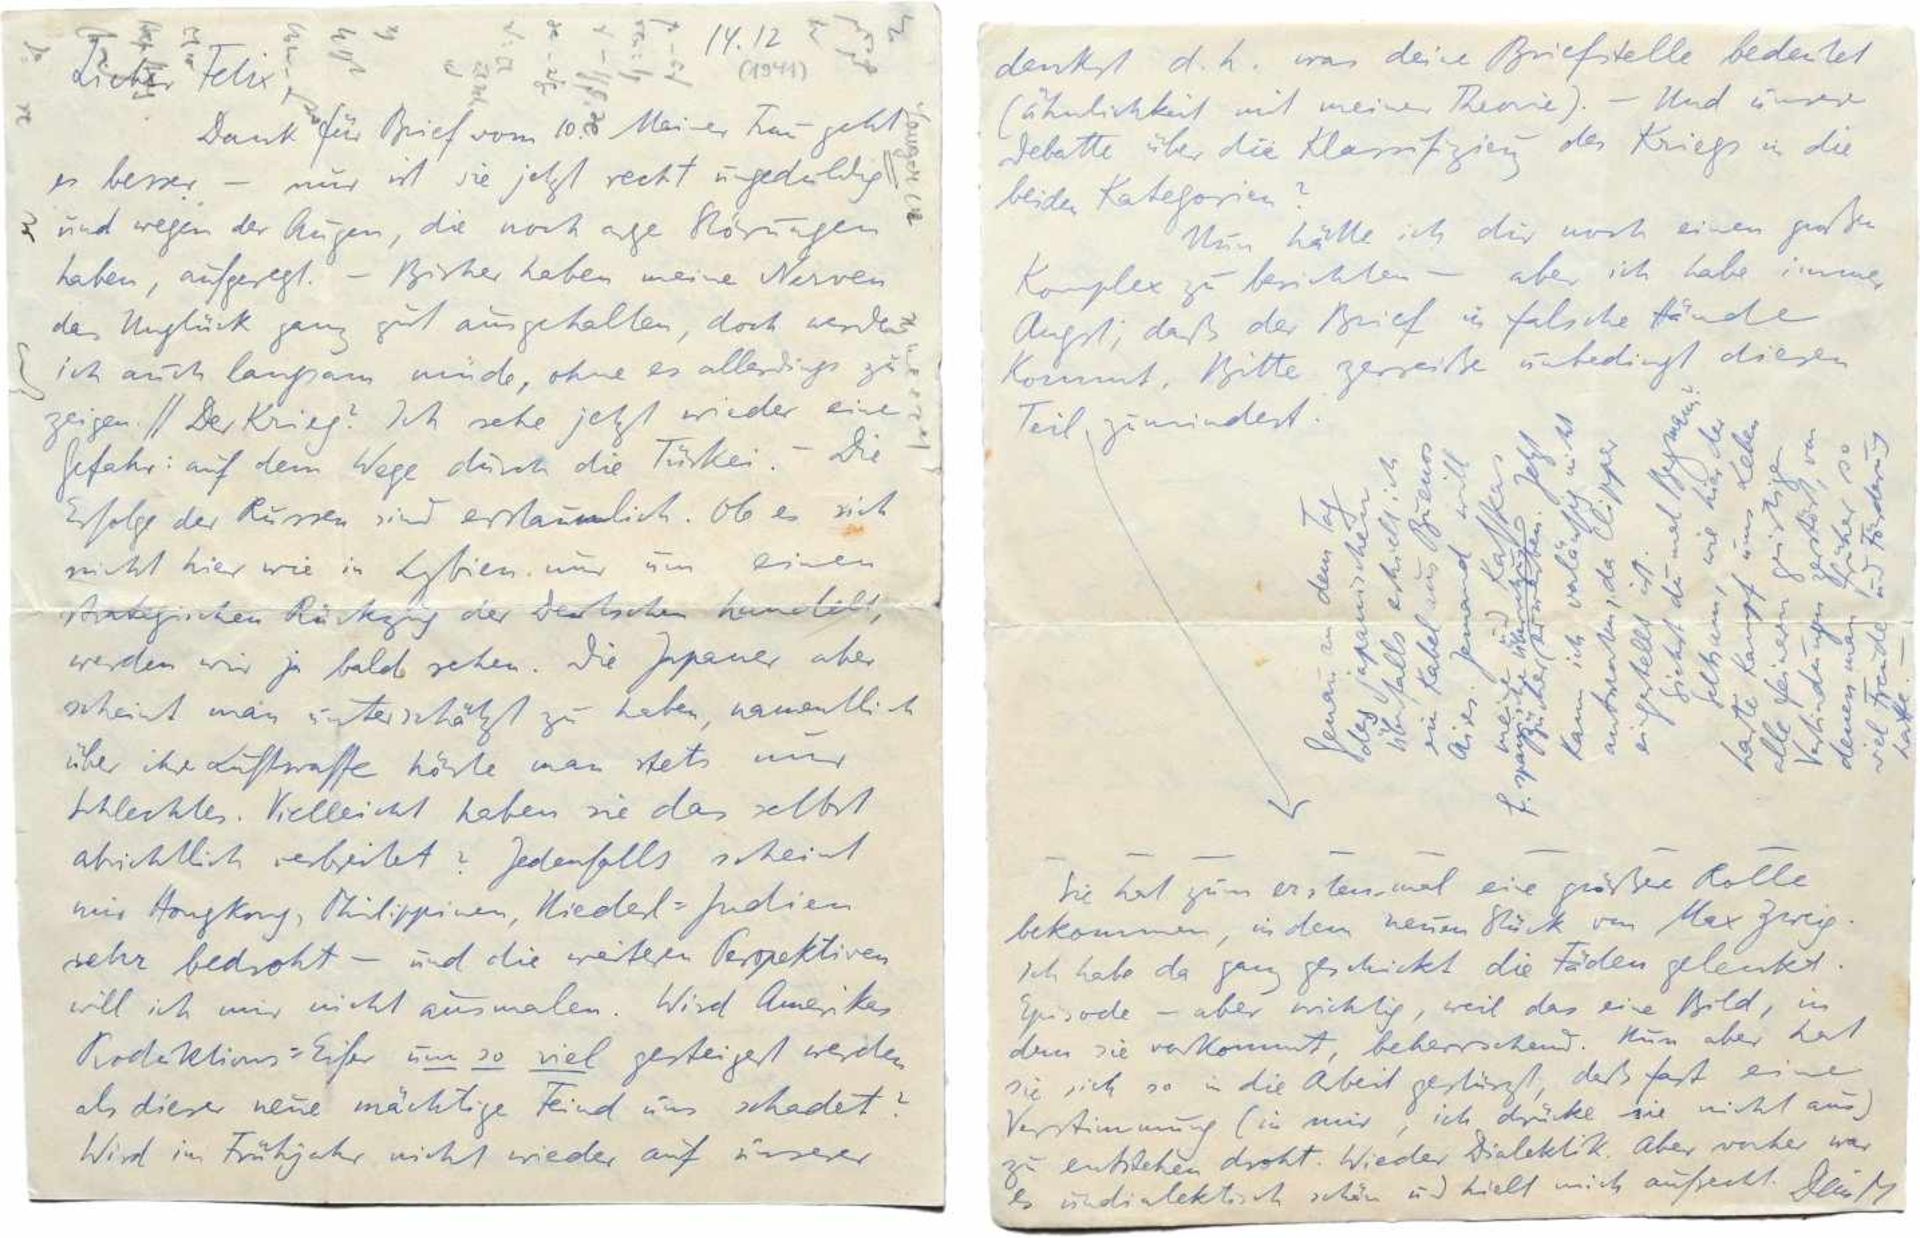 14.12
(1941)
Lieber Felix
Dank für Brief vom 10. Meiner Frau geht
es besser – nur ist sie jetzt recht ungeduldig
und wegen der Augen, die noch arge Störungen
haben, aufgeregt. – Bisher haben meine Nerven
das Unglück ganz gut ausgehalten, doch werde
ich auch langsam müde, ohne es allerdings zu
zeigen. // Der Krieg? Ich sehe jetzt wieder eine
Gefahr: auf dem Wege durch die Türkei. – Die
Erfolge der Russen sind erstaunlich. Ob es sich
nicht hier wie in Lybien nur um einen
strategischen Rückzug der Deutschen handelt,
werden wir ja bald sehen. Die Japaner aber
scheint man unterschätzt zu haben, namentlich
über ihre Luftwaffe hörte man stets nur
Schlechtes. Vielleicht haben sie das selbst
absichtlich verbreitet? Jedenfalls scheint
mir Hongkong, Philippinen, Niederl=Indien
sehr bedroht – und die weiteren Perspektiven
will ich mir nicht ausmalen. Wird Amerikas
Produktions=Eifer um so viel gesteigert werden
als dieser neue mächtige Feind uns schadet?
Wird im Frühjahr nicht wieder auf unserer
denkst d.h. was deine Briefstelle bedeutet
(Ähnlichkeit mit meiner Theorie). – Und unsere
Debatte über die Klassifizierg des Kriegs in die
beiden Kategorien?
Nun hätte ich dir noch einen großen
Komplex zu berichten – aber ich habe immer
Angst, daß der Brief in falsche Hände
kommt. Bitte zerreiße unbedingt diesen
Teil, zumindest.
Genau an dem Tag
des japanischen
Überfalls erhielt ich
ein Kabel aus Buenos
Aires. Jemand will
meine und Kafkas
Bücher
f. spanische Übersetzung
erwerben. Jetzt
kann ich vorläufig nicht
antworten, da Clipper
eingestellt ist.
Siehst du mal Bergmann?
Seltsam, wie hier der
harte Kampf ums Leben
alle feineren geistigen
Verbindungen zerstört, von
denen man früher so
viel Freude und Förderung
hatte. –
Sie hat zum erstenmal eine größere Rolle
bekommen, in dem neuen Stück von Max Zweig.
Ich habe da ganz geschickt die Fäden gelenkt.
Episode – aber wichtig, weil das eine Bild, in
dem sie vorkommt, beherrschend. Nun aber hat
sie sich so in die Arbeit gestürzt, daß fast eine
Verstimmung (in mir, ich drücke sie nicht aus)
zu entstehen droht. Wieder Dialektik. Aber vorher war
es undialektisch schön und hielt mich aufrecht. Dein M